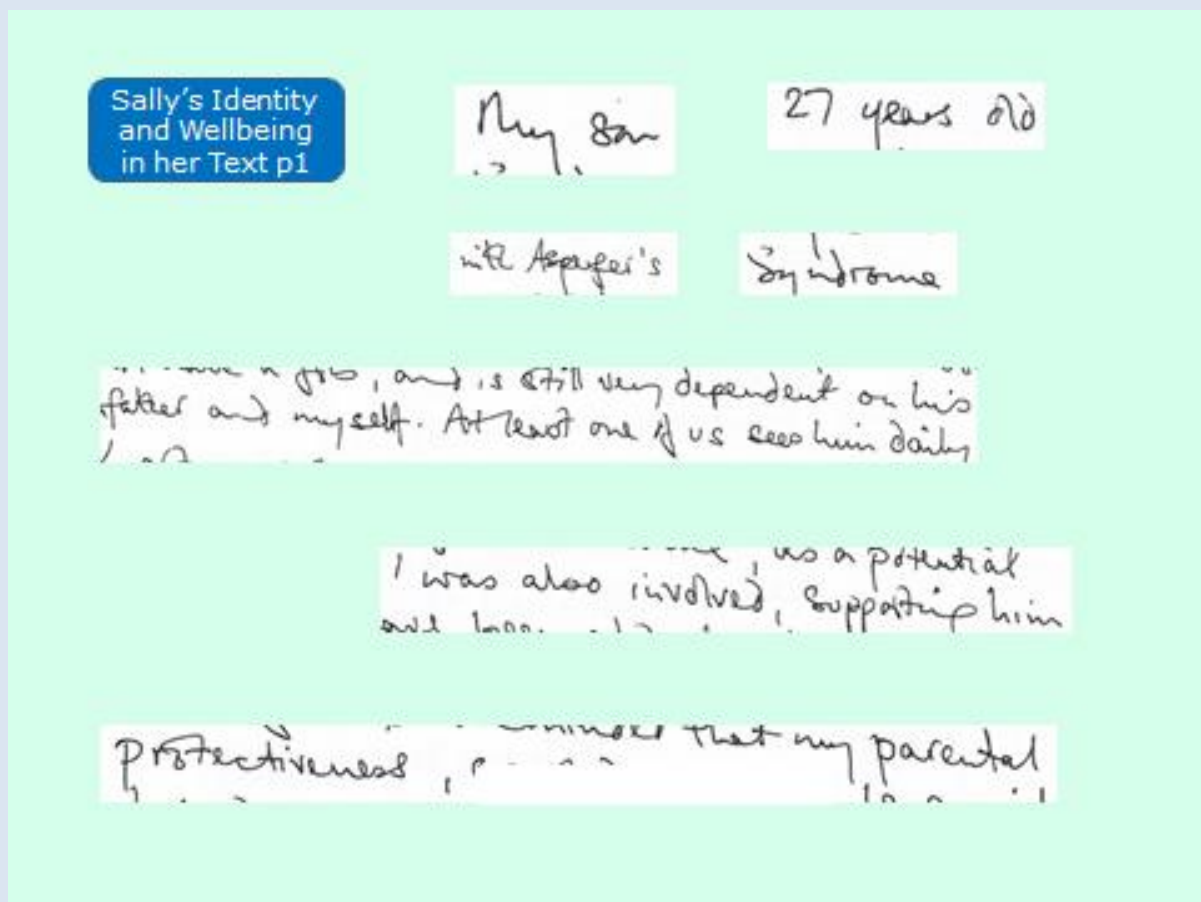 Sally's Identity
and Wellbeing
in her Text p1
My son
27 years old
with Asperger's
Syndrome
a job, and is still very dependent on his
father and myself. At least one of us sees him daily
, as a potential
I was also involved, supporting him
that my parental
protectiveness,